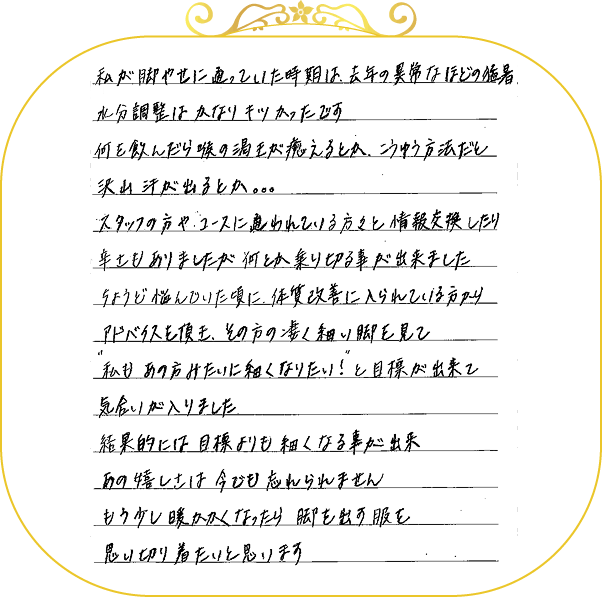 私が脚やせに通っていた時期は、去年の異常なほどの猛暑
水分調整はかなりキツかったです
何を飲んだら喉の渇きが癒えるとか、こうゆう方法だと
沢山汗が出るとか。。。
スタッフの方や、コースに通われている方々と情報交換したり
辛さもありましたが何とか乗り切る事が出来ました
ちょうど悩んでいた頃に、体質改善に入られている方から
アドバイスを頂き、その方の凄く細い脚を見て
"私もあの方みたいに細くなりたい！"と目標が出来て
気合いが入りました
結果的には目標よりも細くなる事が出来
あの嬉しさは今でも忘れられません
もう少し暖かくなったら脚を出す服を
思い切り着たいと思います